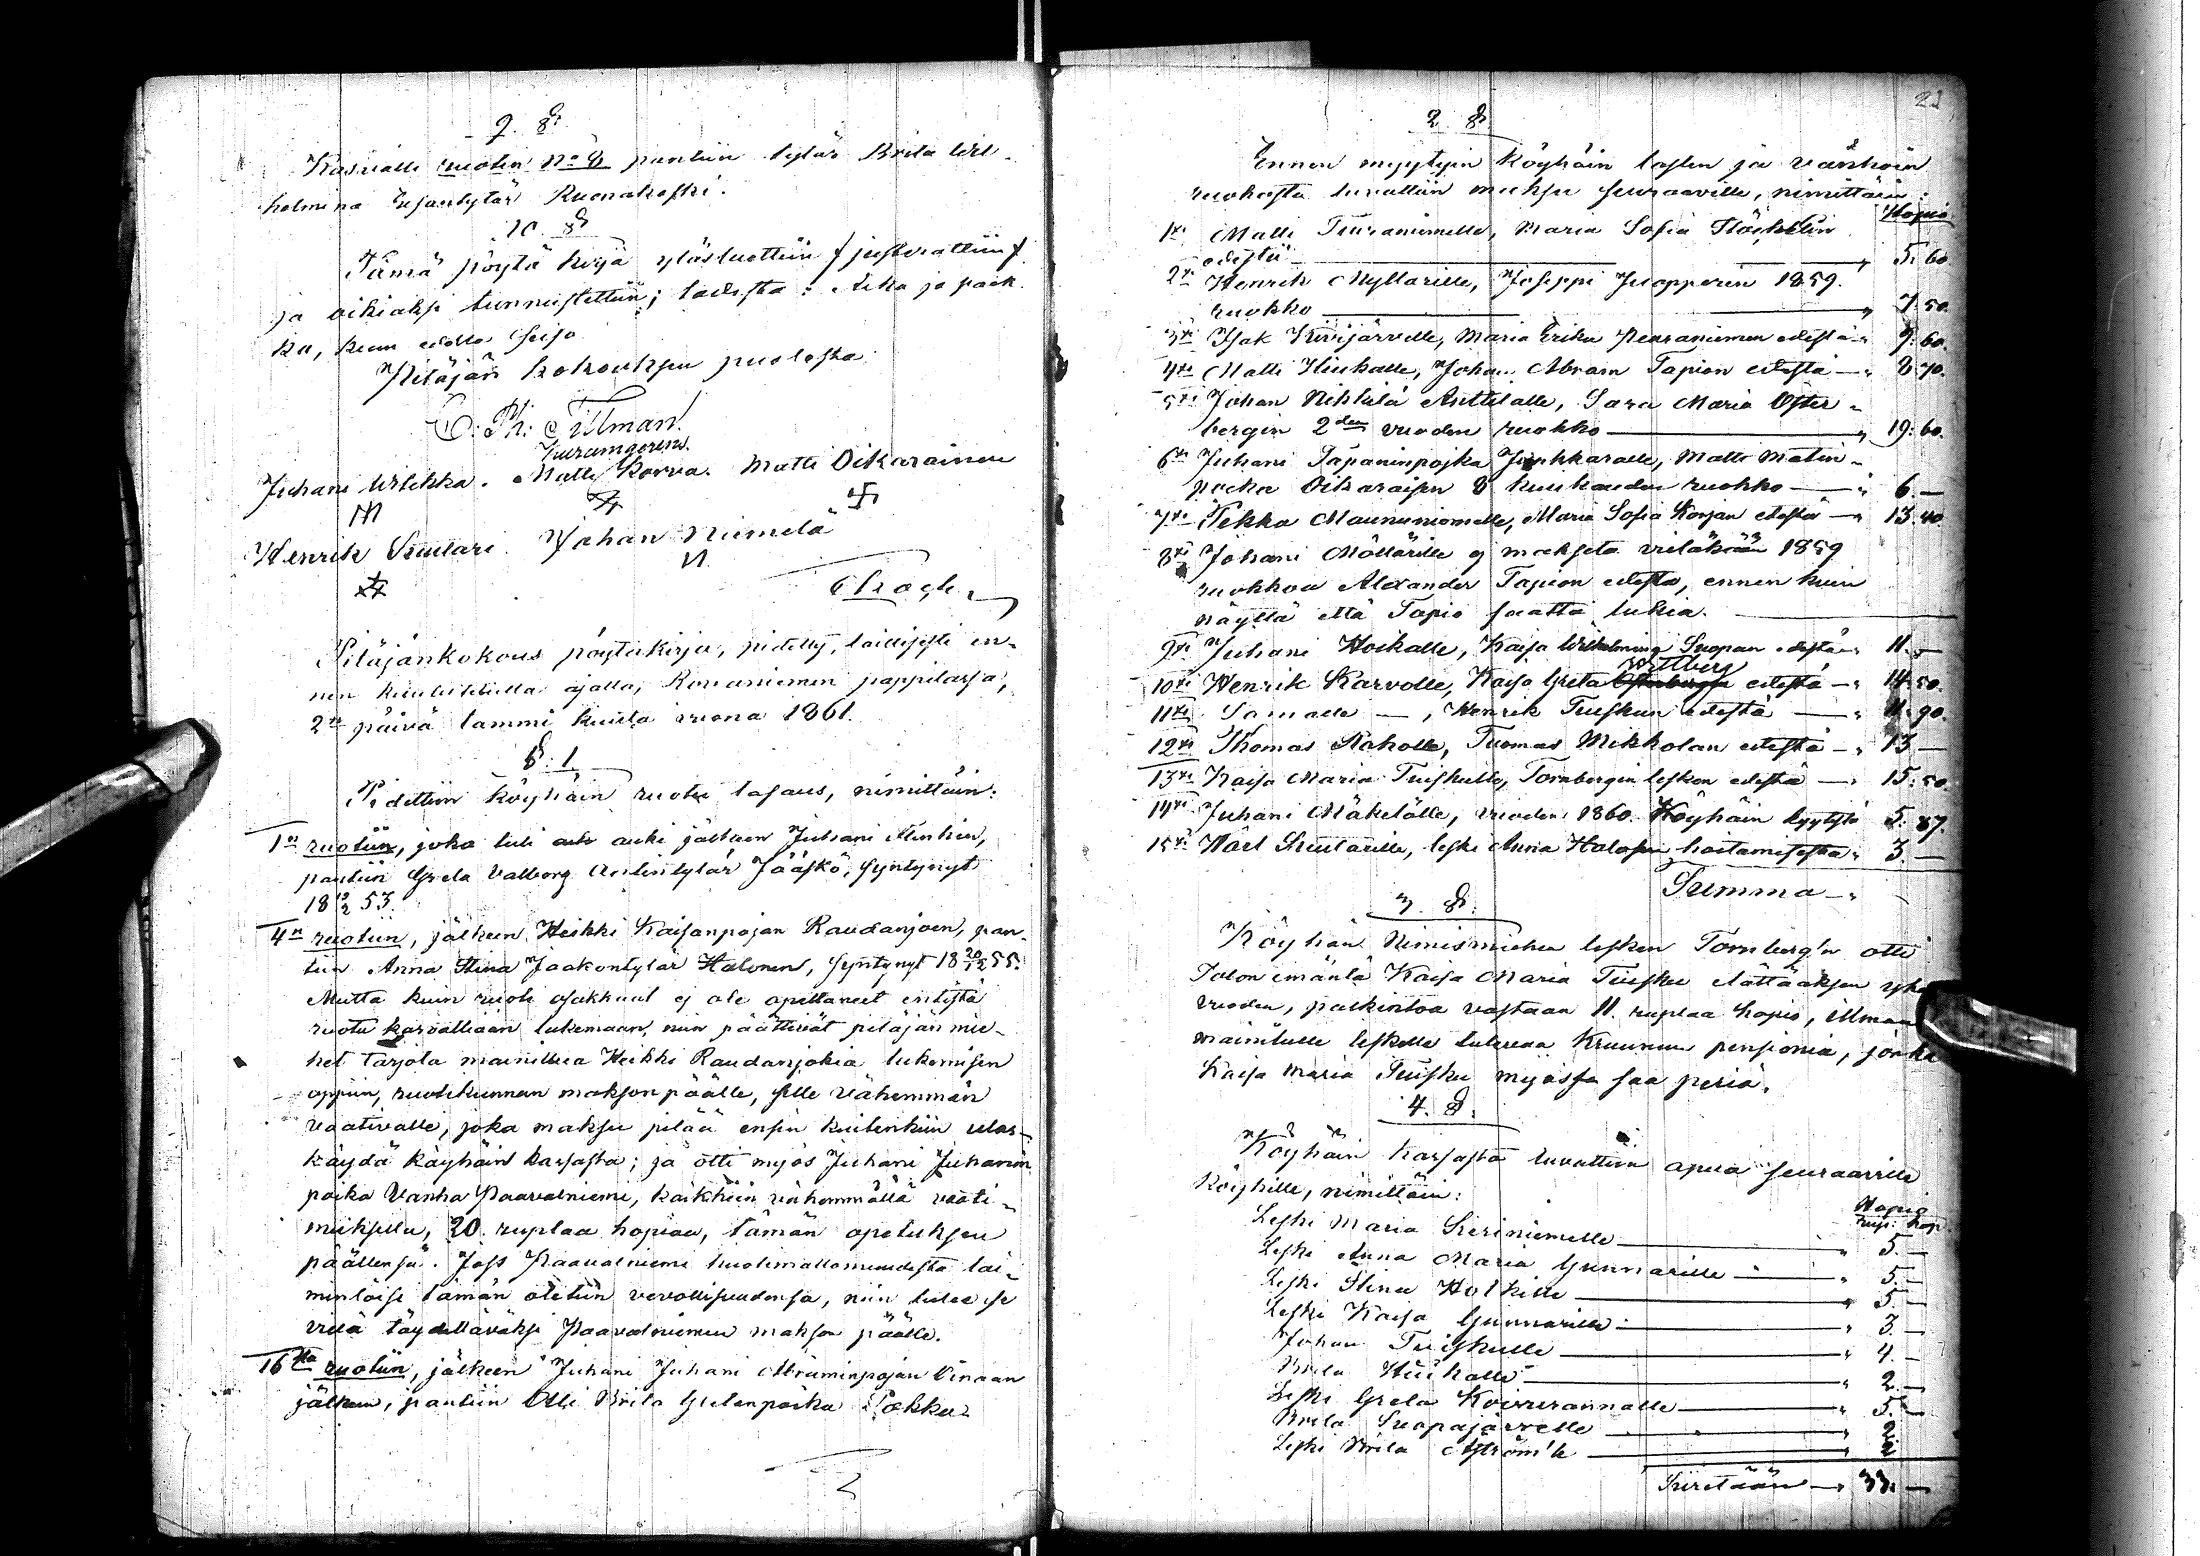 9. §.
Kasvatti ruotin No 8 pantiin tytär Brita Wil-
helmina Erjantytär Ruonakoski.
10 §
Tämä pöytä kirja ylösluettiin justerattiin
ja oikiaksi tunnustettiin; todista: Aika ja paik
ka, kuin edellä seiso
Pitäjän kokouksen puolesta
C: Ph: Tillman.
Juhani Wiekka. Matti Korva. Matti Oikarainen
Henrik Sieulari. Johan Niemelä
Pitäjänkokous pöytäkirja, pidetty, laillisesti en-
nen kuulutetulla ajalla, Rovaniemen pappilassa,
2na päivä tammi kuuta vuona 1861.
§. 1
Pidettiin köyhäin ruotu tasaus, nimittäin:
1n ruotiin, joka tuli auki jälkeen Juhani Aintin,
pantiin Greta Valborg Antintytär Jääskö, syntynyt
18 19/2 53.
4n ruotiin, jälkeen Heikki Kaisanpojan Raudanjoen, pan-
tiin Anna Stina Jaakontytär Halonen, syntynyt 18 20/12 55.
Mutta kuin ruoti osakkaat ej ole opettaneet entistä
ruotu kasvattiaan lukemaan, niin päättivät pitäjän mie-
het tarjota mainittua Heikki Raudanjokia lukemisen
oppiin, ruotikunnan makson päälle, sille vähemmän
vaativalle, joka maksu pitää ensin kuitenkiin ulos-
käydä käyhäin kassasta; ja otti myös Juhani Juhanin
poika Vanha Paavalniemi, kaikkiin vähemmällä vaati-
muksella, 20 ruplaa hopiaa, tämän opetuksen
päällensä. Joss Paavalniemi huolimattomuudesta lai-
minlöisi tämän otetun velvollisuudensa, niin tulee se
vielä täydettäväksi Paavalniemen makson päälle.
16ta ruotiin, jälkeen Juhani Juhani Abraminpojan Oinaan
jälkeen, pantiin Olli Brita Gretanpoika Pokka
22
2 §.
Ennen myytyin köyhäin lasten ja vaivhoin
ruokosta luvattiin maksu seuraaville, nimittäin:
Hopia
1xi Matti Tiuraniemelle, Maria Sofia Stöckelin
edestä " 5. 60
2xi Henrik Myllärille, Joseppi Juopperin 1859.
ruokko " 7. 50.
3xi Isak Kivijärvelle, Maria Erika Peuraniemen edestä " 9. 60.
4xi Matti Hiukalle, Johan Abram Tapion edestä " 8 70.
5xi Johan Nikkilä Anttilalle, Sara Maria Öster-
bergin 2den vuoden ruokko " 19. 60.
6xi Juhani Tapaninpojka Junkkaralle, Matti Matin-
poika Oikaraisen 8 kuukauden ruokko " 6.—
7xi Pekka Maununiemelle, Maria Sofia Korjan edestä " 13. 40
8xi Johani Möllärille ej makseta vieläkään 1859
ruokkoa Alexander Tapion edestä, ennen kuin
näyttä että Tapio saatta lukia.
9xi Juhani Hoikalle, Kaisa Wilhelmina Suopan edestä " 11.—
Wittberg
10xi Henrik Karvolle, Kaisa Greta Österbergin edestä " 14. 50.
11xi Samalle —, Henrik Tuiskun edestä — " 11. 90.
12xi Thomas Ahkolle, Tuomas Mikkolan edestä — " 13 —
13xi Kaisa Maria Tuiskulle, Tornbergin lesken edestä — " 15. 50.
14xi Juhani Mäkelälle, vuoden 1860. Köyhäin kyytystä 5. 87
15xi Karl Sieulaille, leski Anna Halosen hoitamisesta " 3.—
Summa — "
3. §.
Köyhän Nimismiehen lesken Tornberg'n otti
Talon emäntä Kaisa Maria Tuisku elättääksen yhe
vuoden, palkintoa vastaan 11. ruplaa hopia, ilman
mainitulle leskelle tulevaa Kruunun pensionia, jonka
Kaisa Maria Tuisku myössä saa periä.
4. §.
Köyhäin kassasta luvattiin apua seuraaville
Köyhille, nimittäin:
Hopia
rup: kop
Leski Maria Keriniemelle " 5.—
Leski Anna Maria Gunnarille " 5.—
Leski Stina Hotkille " 5.—
Leski Kaisa Gunnarille " 3.—
Johan Tuiskulle " 4.—
Brita Hiukalle " 2.—
Leski Greta Koivurannalle " 5.—
Brita Suopajärvelle " 2
Leski Brita Åström'lle " 2
Siiretään — " 33.—